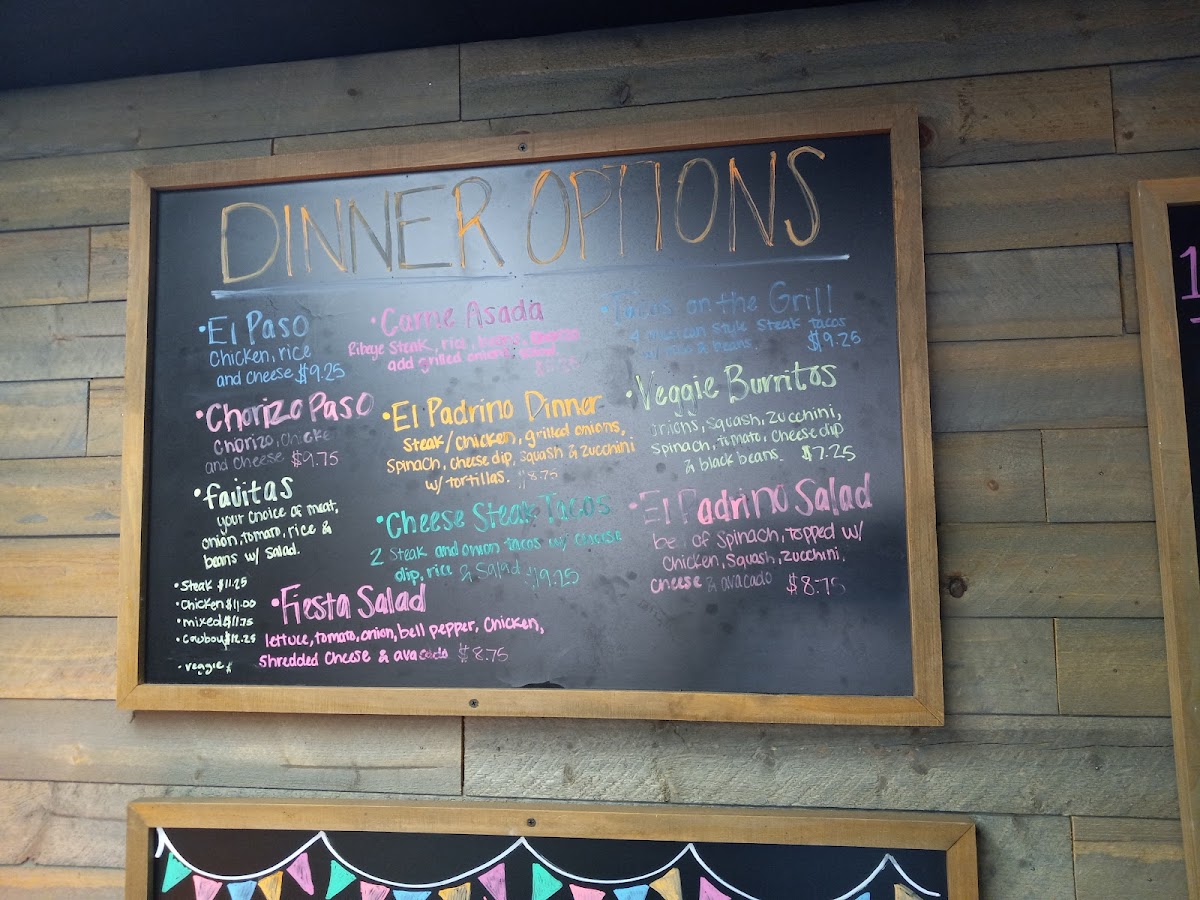 DINNER OPTIONS
• El Paso
Chicken, rice
and cheese $9.25
• Carne Asada
Ribeye Steak, rice, beans,
add grilled onions,
• Tacos on the Grill
4 mexican style steak tacos
& beans. $9.25
• Chorizo Paso
Chorizo, Chicke
and cheese $9.75
• El Padrino Dinner
Steak/Chicken, grilled onions,
Spinach, cheese dip, squash & zucchini
w/ tortillas. $8.75
• Veggie Burritos
onions, squash, zucchini,
spinach, tomato, cheese dip
& black beans. $7.25
• fajitas
your choice of meat,
onion, tomato, rice &
beans w/ salad.
• Steak $11.25
• Chicken $11.00
• mixed $11.75
• Cowboy $12.25
• veggie $
• Cheese Steak Tacos
2 Steak and onion tacos w/ cheese
dip, rice & Salad $9.25
• El Padrino Salad
bed of spinach, topped w/
Chicken, Squash, zucchini,
cheese & avacado $8.75
• Fiesta Salad
lettuce, tomato, onion, bell pepper, Chicken,
shredded cheese & avacado $8.75
1